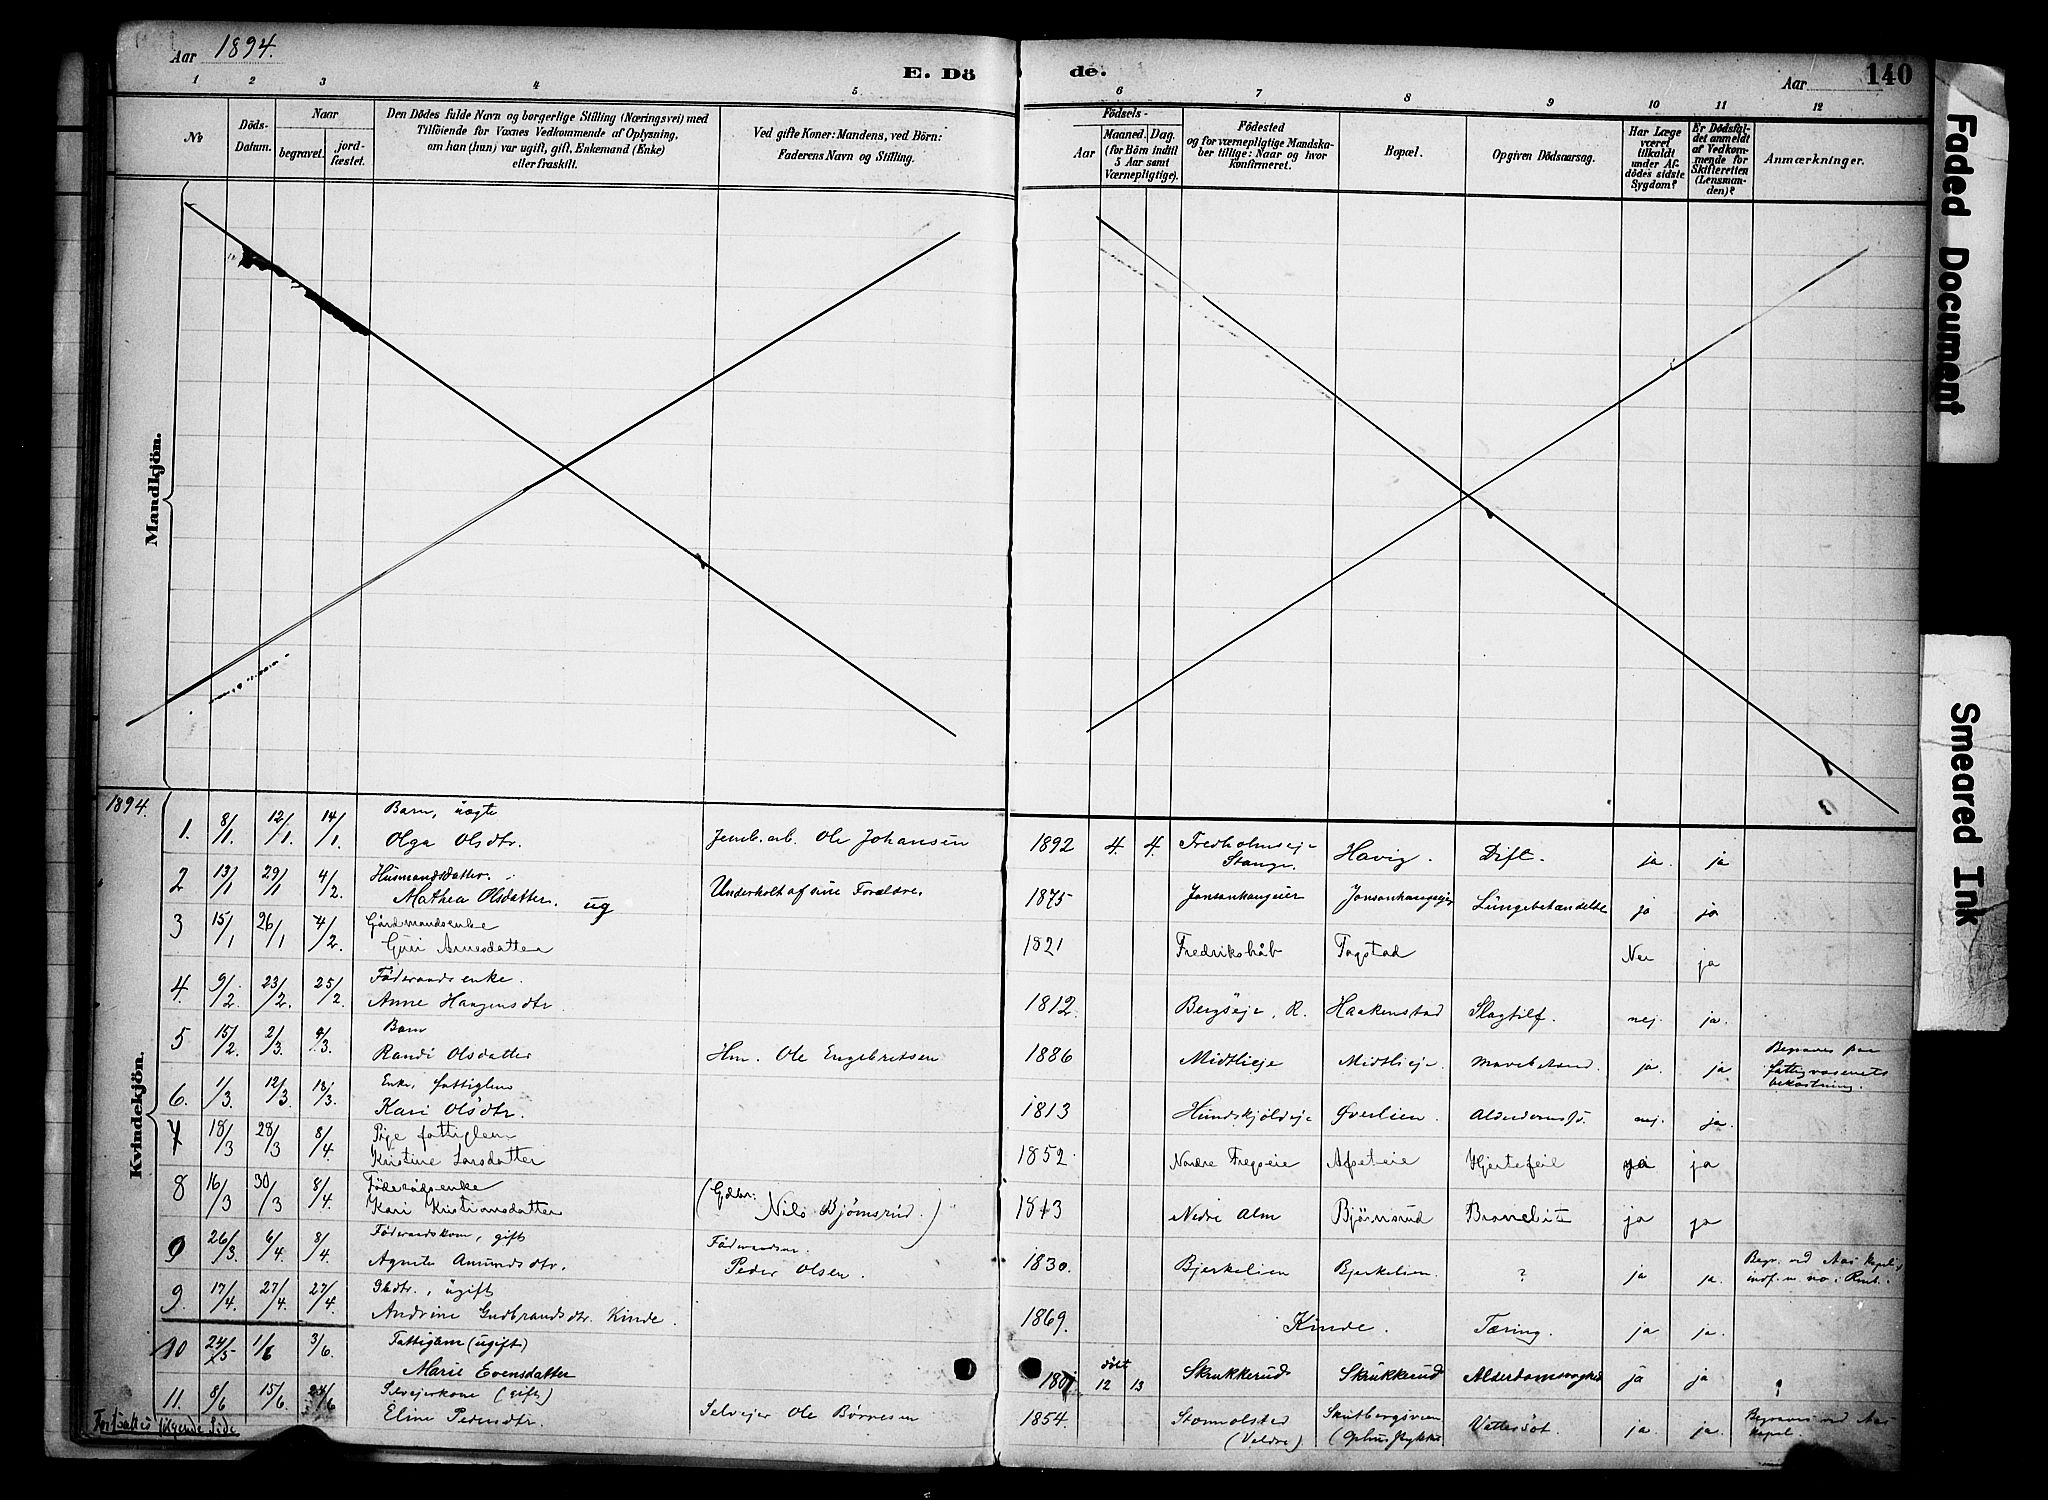 Aar 1894.
E. Dö de.
Aar 140
1 2 3 4 5 6 7 8 9 10 11 12
№
Döds-Datum.
Naar
begravet. jord-fæstet.
Den Dödes fulde Navn og borgerlige Stilling (Næringsvei) med
Tilföiende for Voxnes Vedkommende af Oplysning,
om han (hun) var ugift, gift, Enkemand (Enke)
eller fraskilt.
Ved gifte Koner: Mandens, ved Börn:
Faderens Navn og Stilling.
Födsels-
Aar
Maaned. Dag.
(for Börn indtil
5 Aar samt
Værnepligtige).
Födested
og for værnepligtige Mandska-
ber tillige: Naar og hvor
konfirmeret.
Bopæl.
Opgiven Dödsaarsag.
Har Læge
været
tilkaldt
under Af-
dödes sidste
Sygdom?
Er Dödsfal-
det anmeldt
af Vedkom-
mende for
Skifteretten
(Lensman-
den)?
Anmærkninger.
Mandkjön.
Kvindekjön.
1894.
1. 8/1 12/1 14/1 Barn, uægte
Olga Olsdtr. Ole Johansen 1892 4. 4. Stange Havig. Dift. ja. ja
2 13/1 29/1 4/2. Husmandsdatter.
Mathea Olsdatter. ug Underholdt af sine Forældre. 1875 ja ja
3 15/1 26/1 4/2 Gårdmandsenke
Guri Arnesdatter 1821 Fredrikshåb Togstad Nei ja
4. 9/2. 23/2. 25/2. Föderaadsenke.
Anne Haagensdtr 1812. Bergseje, R. Haakenstad Slagtilf. nej. ja.
5 15/2. 2/3. 9/3. Barn
Randi Olsdatter Hm. Ole Engebretsen 1886 Midtlieje Midtlieje ja. ja Begraves paa
fattigvæsenets
bekostning.
6. 1/3. 12/3. 18/3. Enke, fattiglem
Kari Olsdtr. 1813 Hundskjöldeje Øverlien. nej. ja.
7 18/3 28/3 8/4 Pige fattiglem
Kristine Larsdatter 1852 Nordre Hjertefeil ja ja
8 16/3 30/3 8/4 Föderådsenke
Kari Kristiansdatter (Gdbr: Nils Bjørnsrud.) 1843 Nedre Alm Bjørnsrud ja ja
9 26/3. 6/4. 8/4. gift
Agnete Amundsdtr. Peder Olsen. 1830. Bjerkelien Bjerkelien. ? ja ja. Begr. ved Aas kapel
9. 17/4. 27/4. 27/4. Gbdtr., ugift
Andrine Gudbrandsdtr. Kinde. 1869. Kinde. Tæring. ja ja.
10 24/5 1/6 3/6. Fattiglem (ugift)
Marie Evensdatter 1801 døbt 12 13 Skrukkerud Skrukkerud Alderdomssvaghed ja ja
11. 8/6 15/6 24/6 Selvejerkone (gift)
Eline Pedersdtr. Selvejer Ole Børresen 1854. (Veldre) Vattersot. ja. ja. Begraves ved Aas
kapel.
Fortsættes følgende Side
Faded Document
Smeared Ink